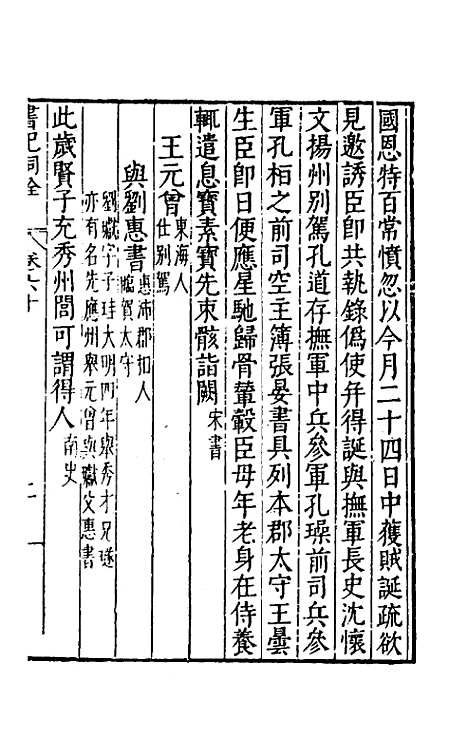 國恩特百常憤忽以今月二十四日中獲賊誕疏欲
見邀誘臣即共執錄偽使并得誕與撫軍長史沈懷
文揚州别駕孔道存撫軍中兵參軍孔璪前司兵參
軍孔桓之前司空主簿張晏書具列本郡太守王曇
生臣即日便應星馳歸骨輦轂臣母年老身在侍養
輒遣息寶素寶先束骸詣闕宋書
王元曾東海人
仕别駕
與劉惠書惠沛郡相人
臨賀太守
劉瓛字子珪大明四年舉秀才兄璲
亦有名先應州舉元曾與瓛父惠書
此歲賢子充秀州閭可謂得人南史
書記洞詮
卷六十
二